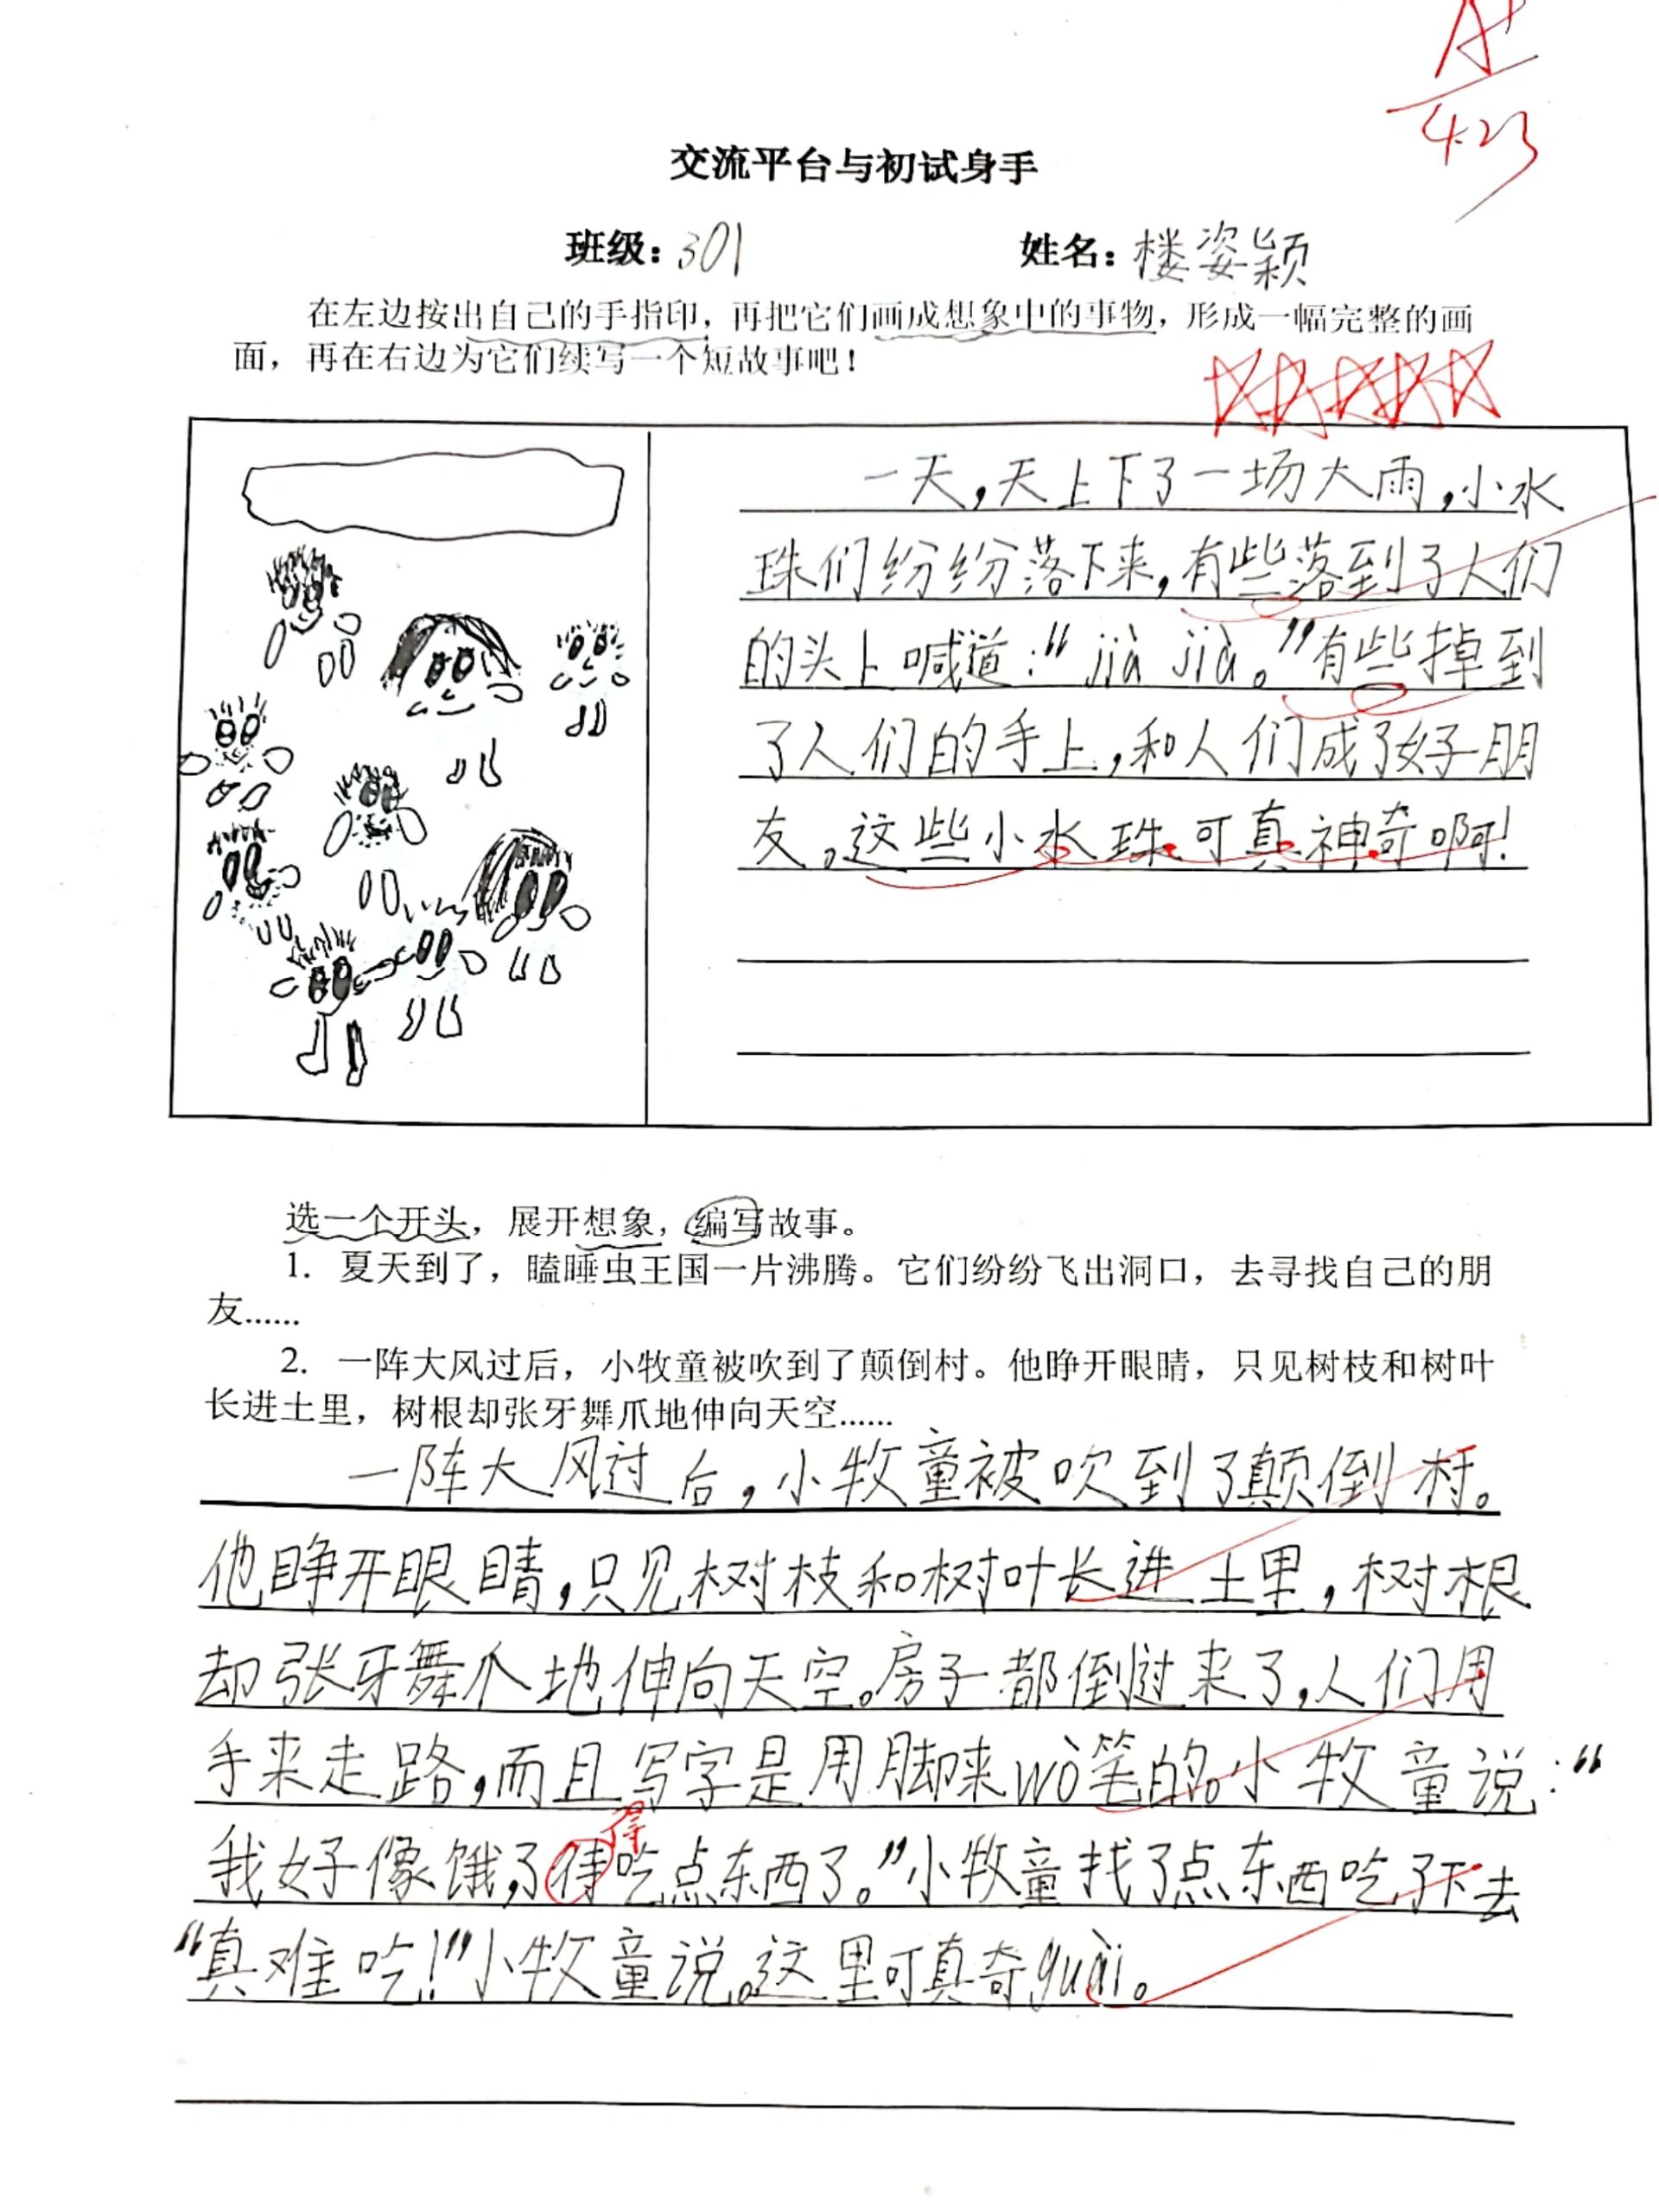 A+
4.23
交流平台与初试身手
班级：301 姓名：楼姿颖
在左边按出自己的手指印，再把它们画成想象中的事物，形成一幅完整的画
面，再在右边为它们续写一个短故事吧！
一天，天上下了一场大雨，小水
珠们纷纷落下来，有些落到了人们
的头上喊道：“jià jià。”有些掉到
了人们的手上，和人们成了好朋
友。这些小水珠可真神奇啊！
选一个开头，展开想象，编写故事。
1. 夏天到了，瞌睡虫王国一片沸腾。它们纷纷飞出洞口，去寻找自己的朋
友……
2. 一阵大风过后，小牧童被吹到了颠倒村。他睁开眼睛，只见树枝和树叶
长进土里，树根却张牙舞爪地伸向天空……
一阵大风过后，小牧童被吹到了颠倒村。
他睁开眼睛，只见树枝和树叶长进土里，树根
却张牙舞爪地伸向天空。房子都倒过来了，人们用
手来走路，而且写字是用脚来wò笔的。小牧童说：“
得
我好像饿了，待吃点东西了。”小牧童找了点东西吃了下去
“真难吃！”小牧童说。这里可真奇guài。